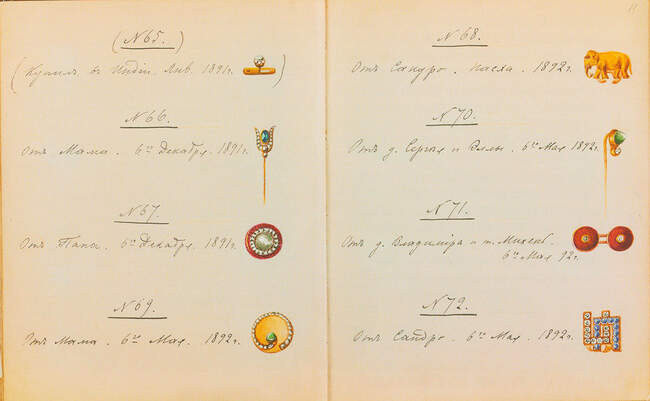 (N 65.)
(Купилъ въ Индіи. Янв. 1891г.)
N 66.
Отъ Мама. 6го Декабря. 1891г.
N 67.
Отъ Папа. 6го Декабря. 1891г.
N 69.
Отъ Мама. 6го Мая. 1892г.
11
N 68.
Отъ Сандро. Пасха. 1892г.
N 70.
Отъ д. Сергѣя и Эллы. 6го Мая 1892г.
N 71.
Отъ д. Владиміра и т. Михень.
6го Мая. 92г.
N 72.
Отъ Сандро. 6го Мая. 1892г.